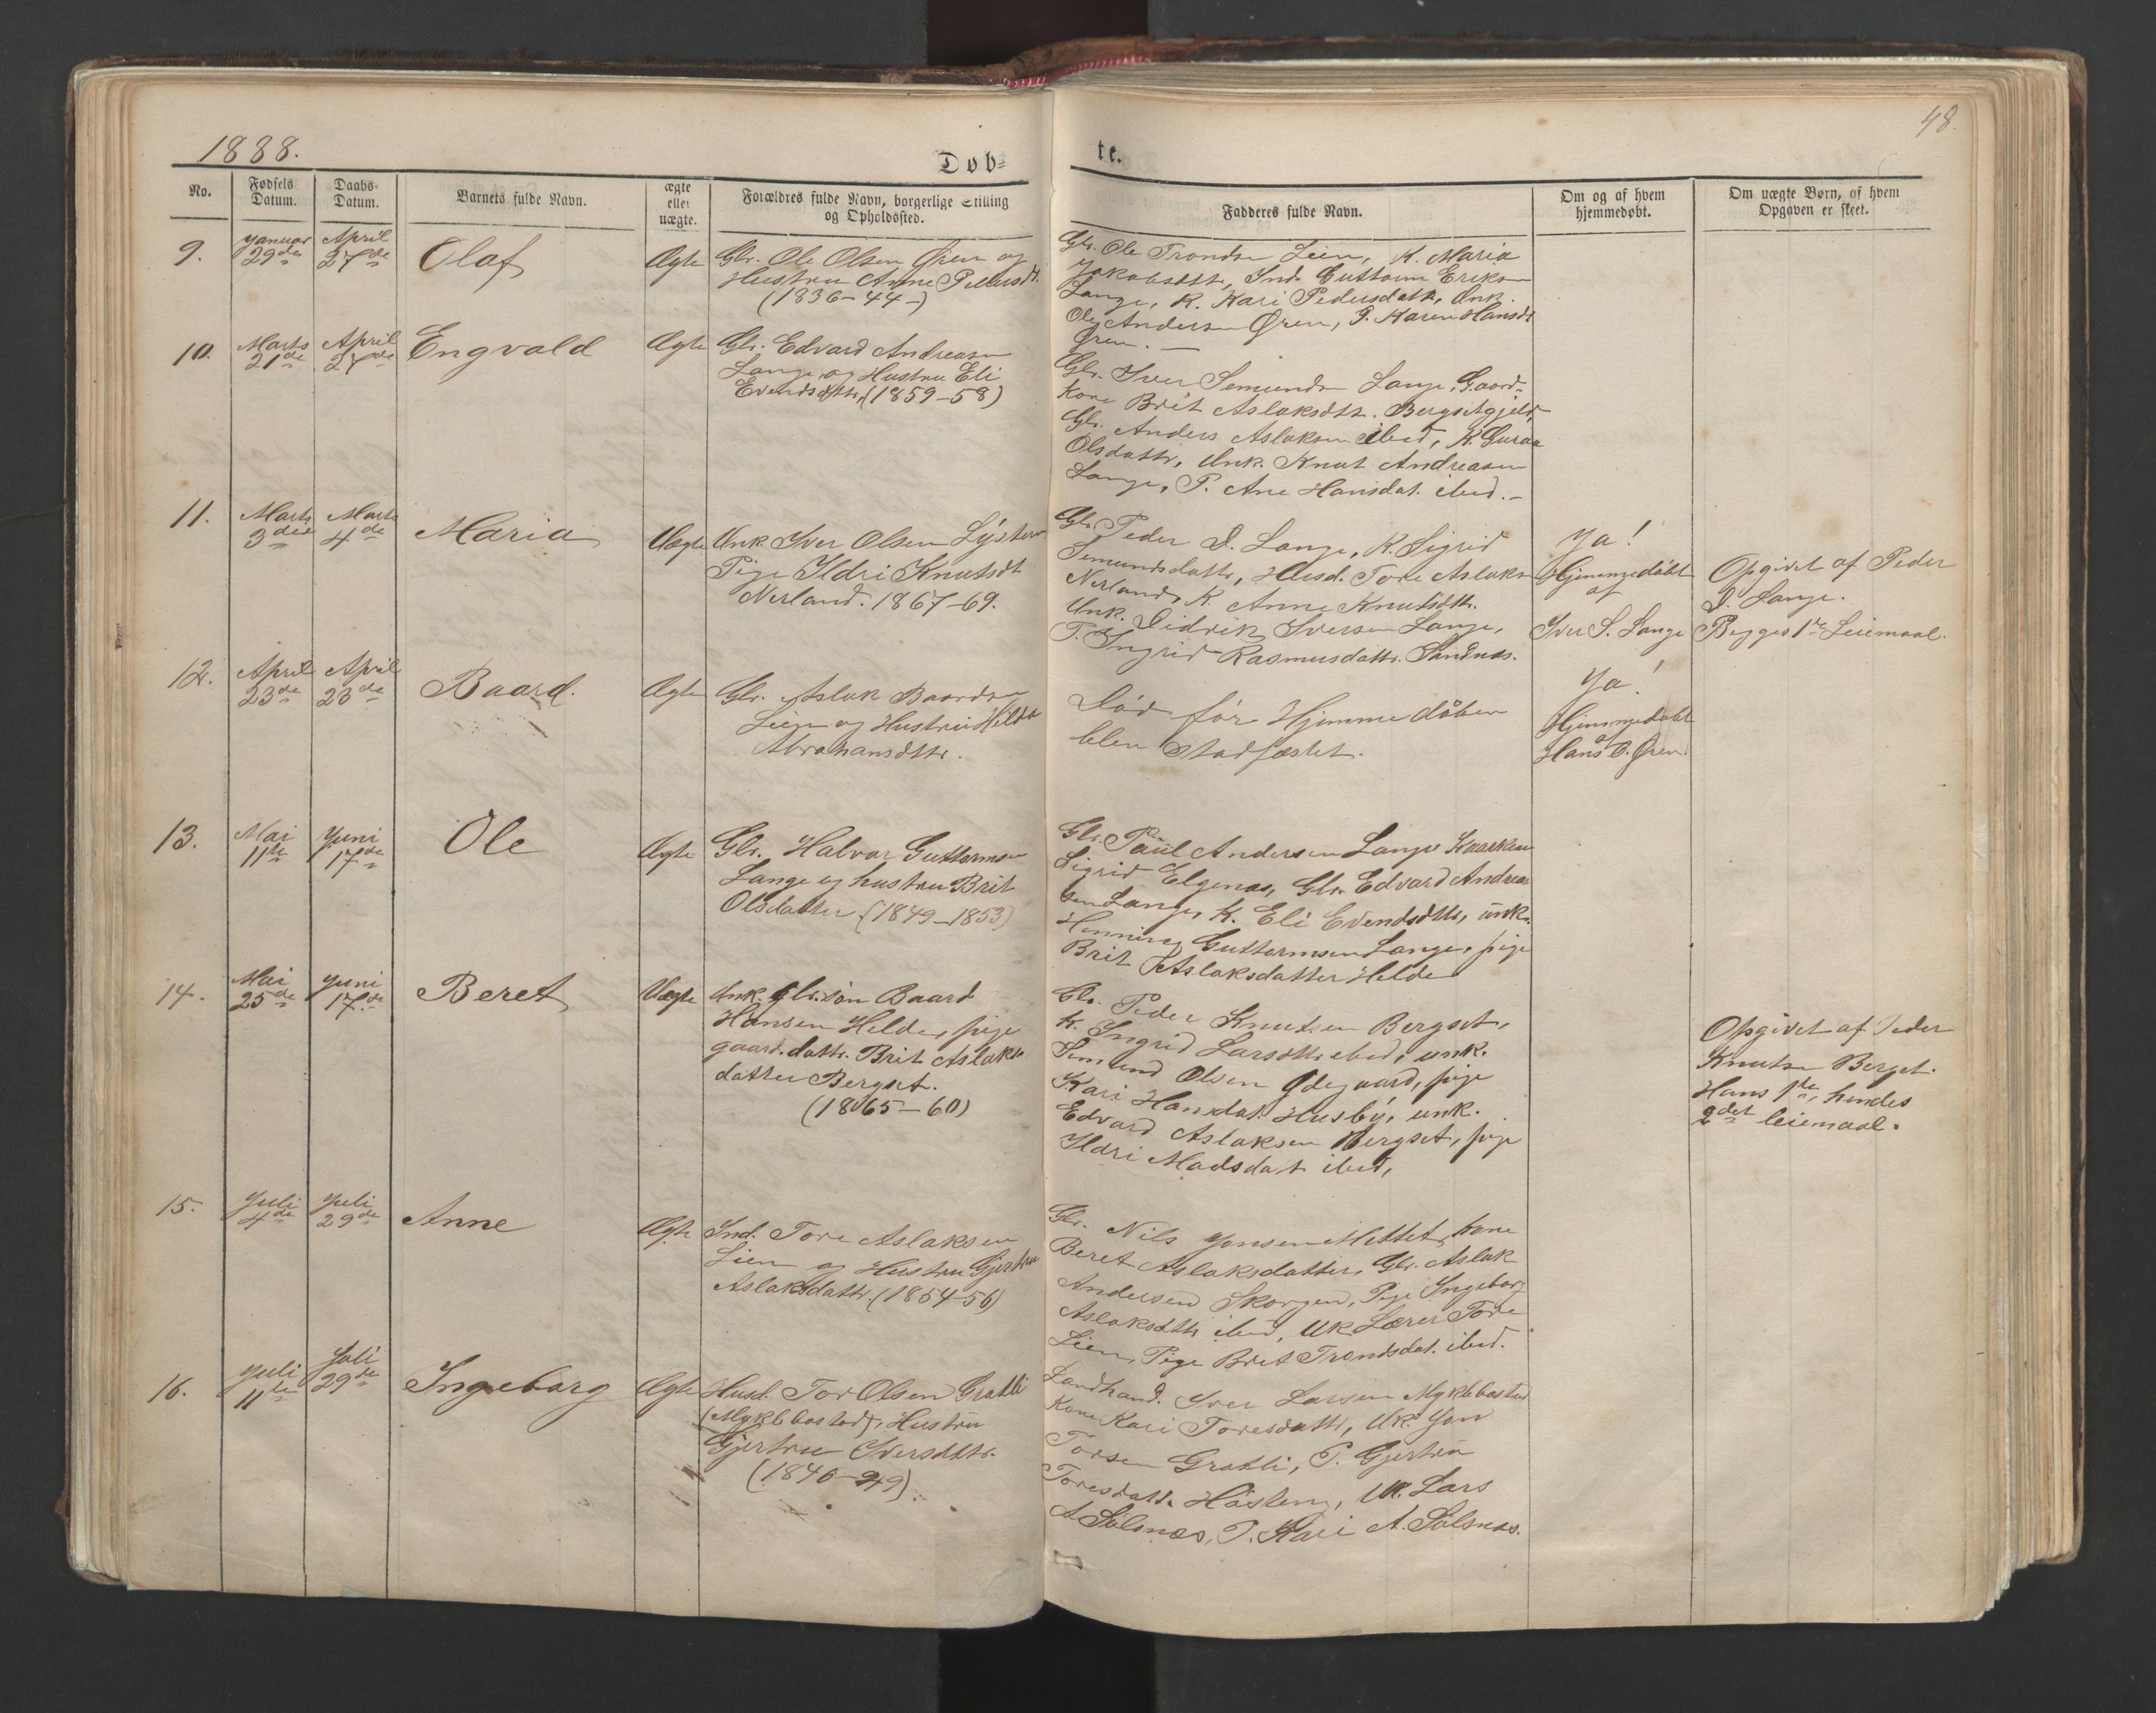 1888.
Døb=
No.
Fødsels Datum.
Daabs= Datum.
Barnets fulde Navn.
ægte eller uægte.
Forældres fulde Navn, borgerlige Stilling og Opholdssted.
9.
Januar 29de
April 27de
Olaf
Ægte
Gbr. Ole Olsen Øren og
Hustru Anne Pedersdt.
(1836-44-)
10.
Marts 21de
April 27de
Engvald
Ægte
Gbr. Edvard Andreasen
Lange og Hustru Eli
Evendsdttr. (1859-58)
11.
Marts 3die
Marts 4de
Maria
Uægte
Unk. Iver Olsen
Pige Ildri Knutsdt
Nerland. 1867-69.
12.
April 23de
April 23de
Baard.
Ægte
Gbr. Aslak Baardsen
Lien og Hustru Hilda
Abrahamsdttr.
13.
Mai 11te
Juni 17de
Ole
Ægte
Gbr. Halvor Guttormsen
Lange og hustru Brit
Olsdatter (1849-1853)
14.
Mai 25de
Juni 17de
Beret
Uægte
Unk. gbr.søn Baard
Hansen Helde, pige
gaard.dattr. Brit Aslaks
datter Bergset.
(1865-60)
15.
Juli 4de
Juli 29de
Anne
Ægte
Ind. Tore Aslaksen
Lien og Hustru Gjertru
Aslaksdattr. (1854-56)
16.
Juli 11te
Juli 29de
Ingeborg
Ægte
Husd. Tor Olsen Grøtli
(Myklebostad), Hustru
Gjertru Iversdttr.
(1846-49)
48.
te.
Fadderes fulde Navn.
Om og af hvem hjemmedøbt.
Om uægte Børn, af hvem Opgaven er skeet.
Gbr. Ole Trondsen Lien, K. Maria
Jakobsdtt., Ind. Guttorm Eriksen
Lange, K. Kari Pedersdatt., Unk.
Ole Andersen Øren, P. Karen Hansdt
Øren. —
Gbr. Iver Semundsen Lange, Gaard-
kone Brit Aslaksdtt. Bergset
Gbr. Anders Aslaksen ibid, K. Guraa
Olsdattr, Unk. Knut Andreasen
Lange, P. Ane Hansdat. ibid. -
Gbr. Peder I. Lange, K. Sigrid
Semundsdattr, Husd. Tore Aslaksen
Nerland, K. Anne Knutsdttr.
Unk. Didrik Iversen Lange,
P. Ingrid Rasmusdattr. Sandnes.
Ja!
Hjemmedøbt
af
Iver S. Lange
Opgivet af Peder
I. Lange.
Begges 1ste Leiemaal.
Død før Hjemmedåben
blev stadfæstet.
Ja!
Hjemmedøbt
af
Hans O. Øren.
Gbr. Paul Andersen Lange
Sigrid Elgenes, Gbr. Edvard Andrea
sen Lange, K. Eli Evendsdttr, unk.
Henning Guttormsen Lange, pige
Brit Aslaksdatter Helde
Gbr. Peder Knutsen Bergset,
K. Ingrid Larsdttr ibid, unk.
Semund Olsen Ødegaard, pige
Kari Hansdat. Husby, unk.
Edvard Aslaksen Bergset, pige
Ildri Madsdat. ibid,
Opgivet af Peder
Knutsn Berget.
Hans 1ste, hendes
2det leiemaal.
Gbr. Nils Jonsen Mittet, Kone
Beret Aslaksdatter, Gbr. Aslak
Andersen Skorgen, Pige Ingeborg
Aslaksdttr ibid, UK Lærer Tore
Lien, Pige Brit Trondsdat. ibid.
Landhand. Iver Larsen Myklebostad
Kone Kari Toresdattr, UK. Jon
Torsen Grøtli, P. Gjertru
Toresdatt. UK. Lars
A Sølsnæs, P. Kari A. Sølsnæs.